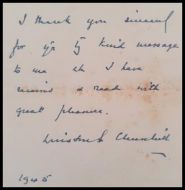 I thank you sincerely
for yr kind message
to me wh I have
received & read with
great pleasure.
Winston S. Churchill
1945